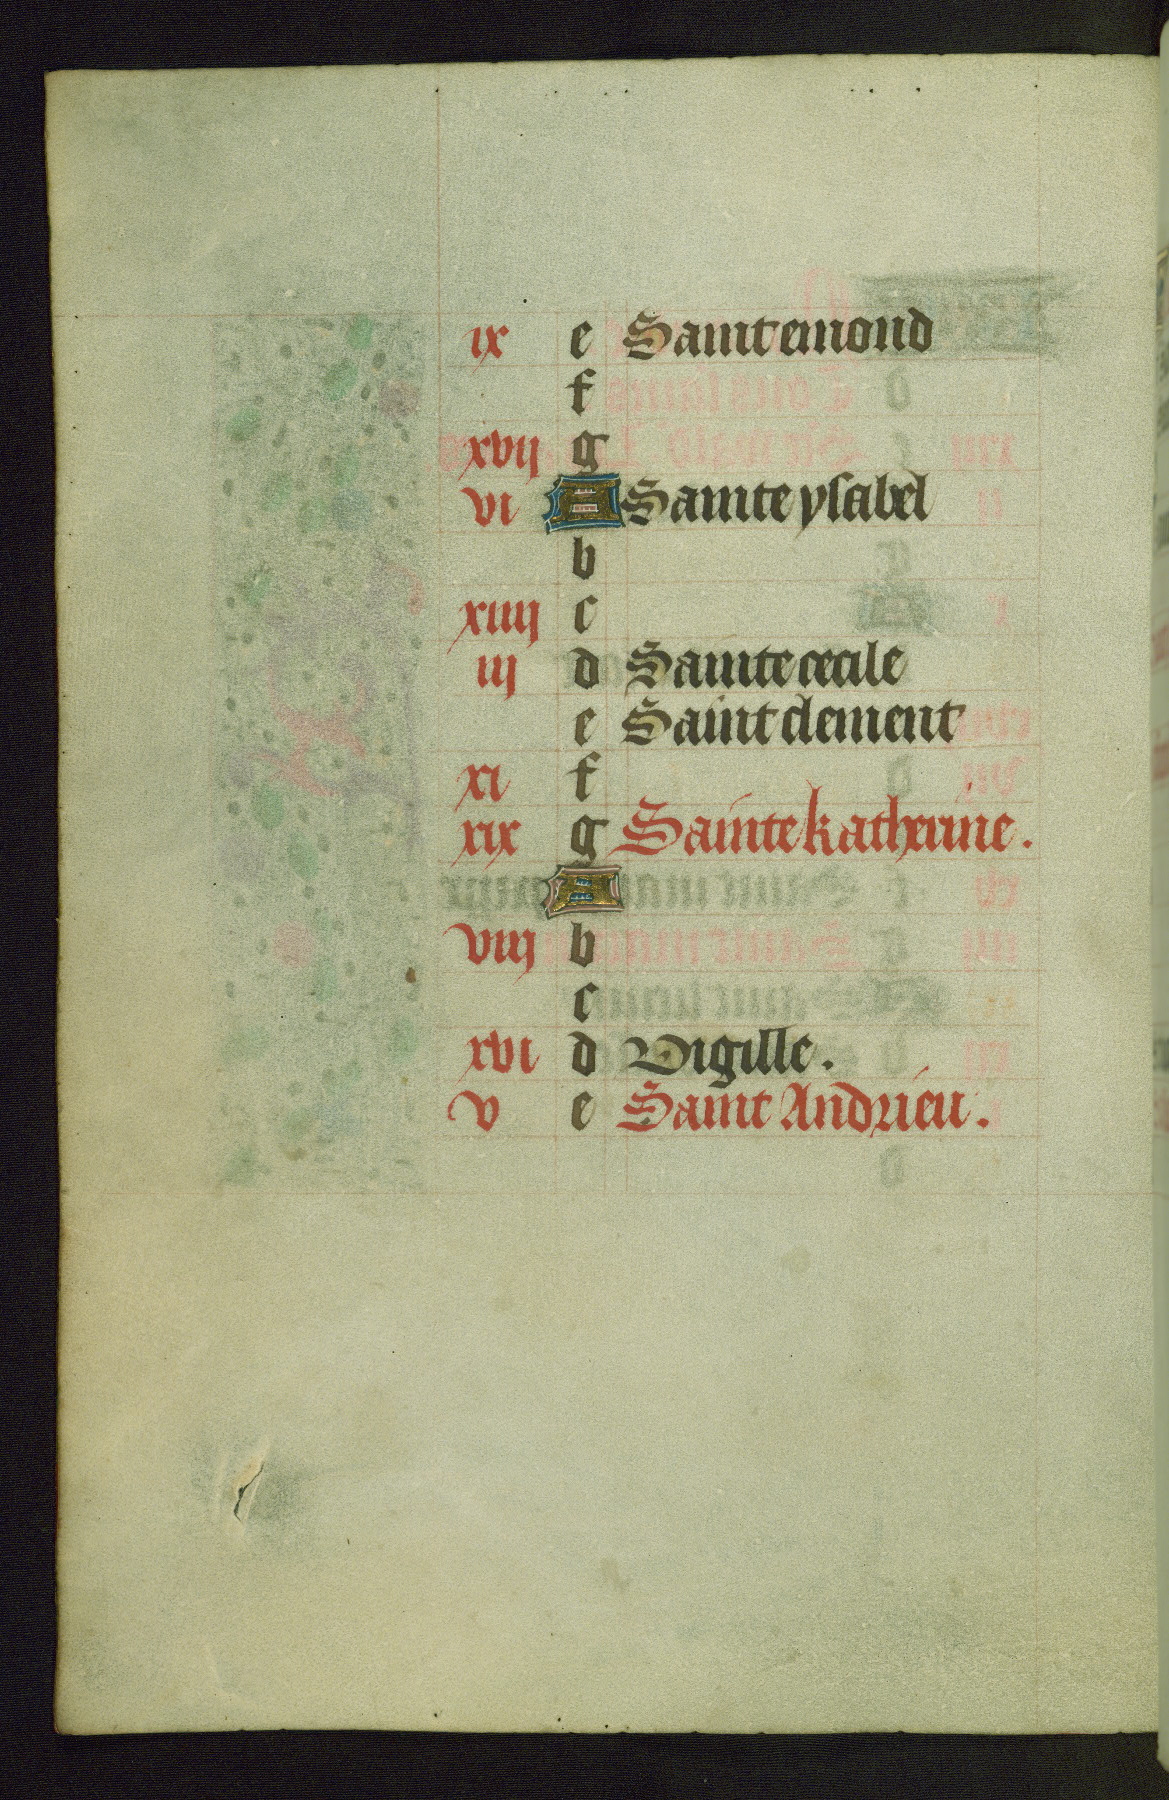 ix e Saint emond
f
xvij g
vi A Sainte ysabel
b
xiiij c
iij d Sainte cecile
e Saint clement
xi f
xix g Sainte katherine.
A
viij b
c
xvi d Vigille.
v e Saint Andrieu.